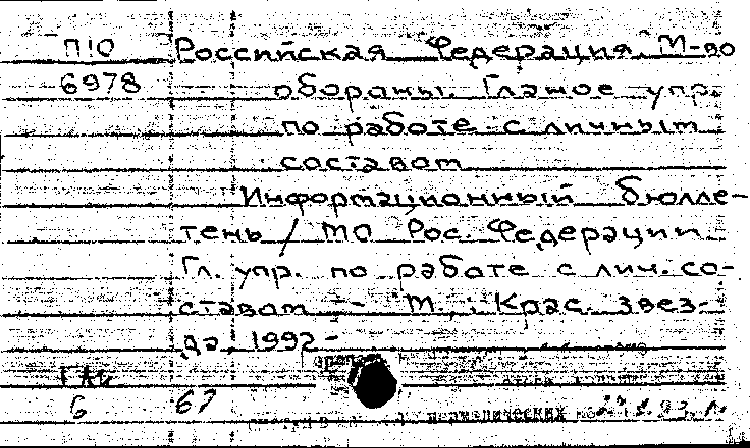 П10 Российская Федерация. М-во
6978 обороны. Главное упр.
по работе с личным
составом
Информационный бюлле-
тень / МО Рос. Федерации.
Гл. упр. по работе с лич. со-
ставом. - М.: Крас. звез-
да, 1992-
6 67
периодических